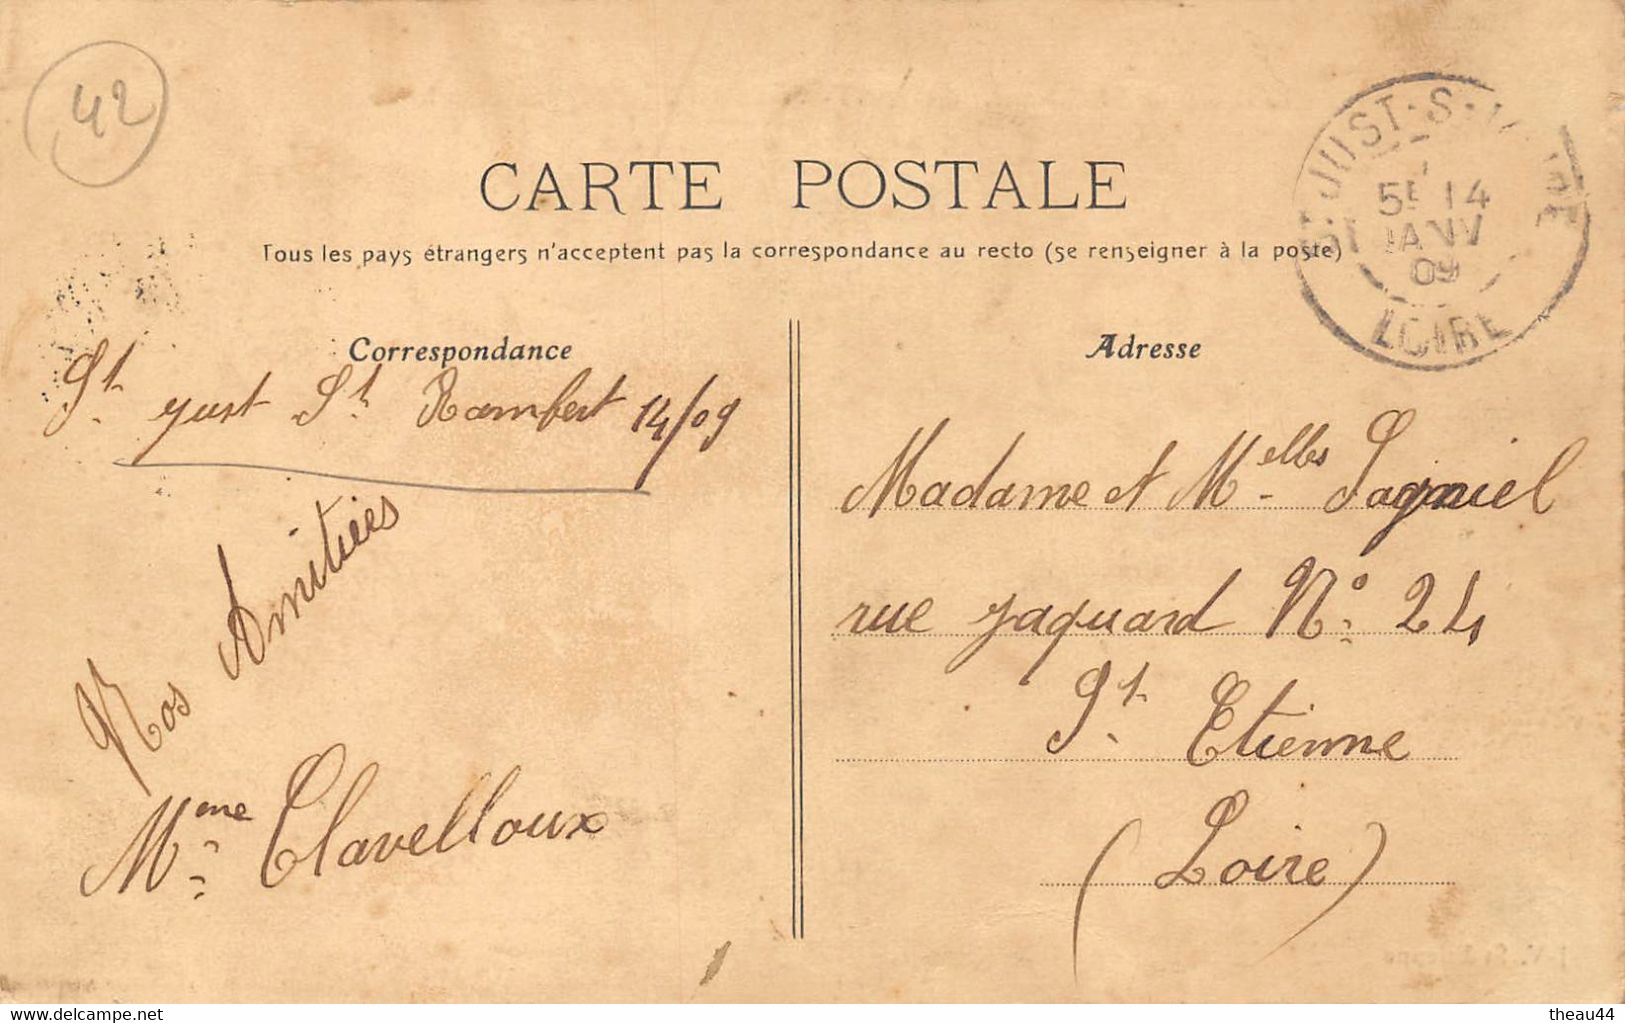 42
CARTE POSTALE
Tous les pays étrangers n'acceptent pas la correspondance au recto (se renseigner à la poste)
ST JUST-S-
5E 14
JANV
09
LOIRE
Correspondance
St yust St Rambert 14/09
Nos Amitiées
Mme Clavelloux
Adresse
Madame et Melles
rue Jaquard No 24
St Etienne
(Loire)
www.delcampe.net
theau44